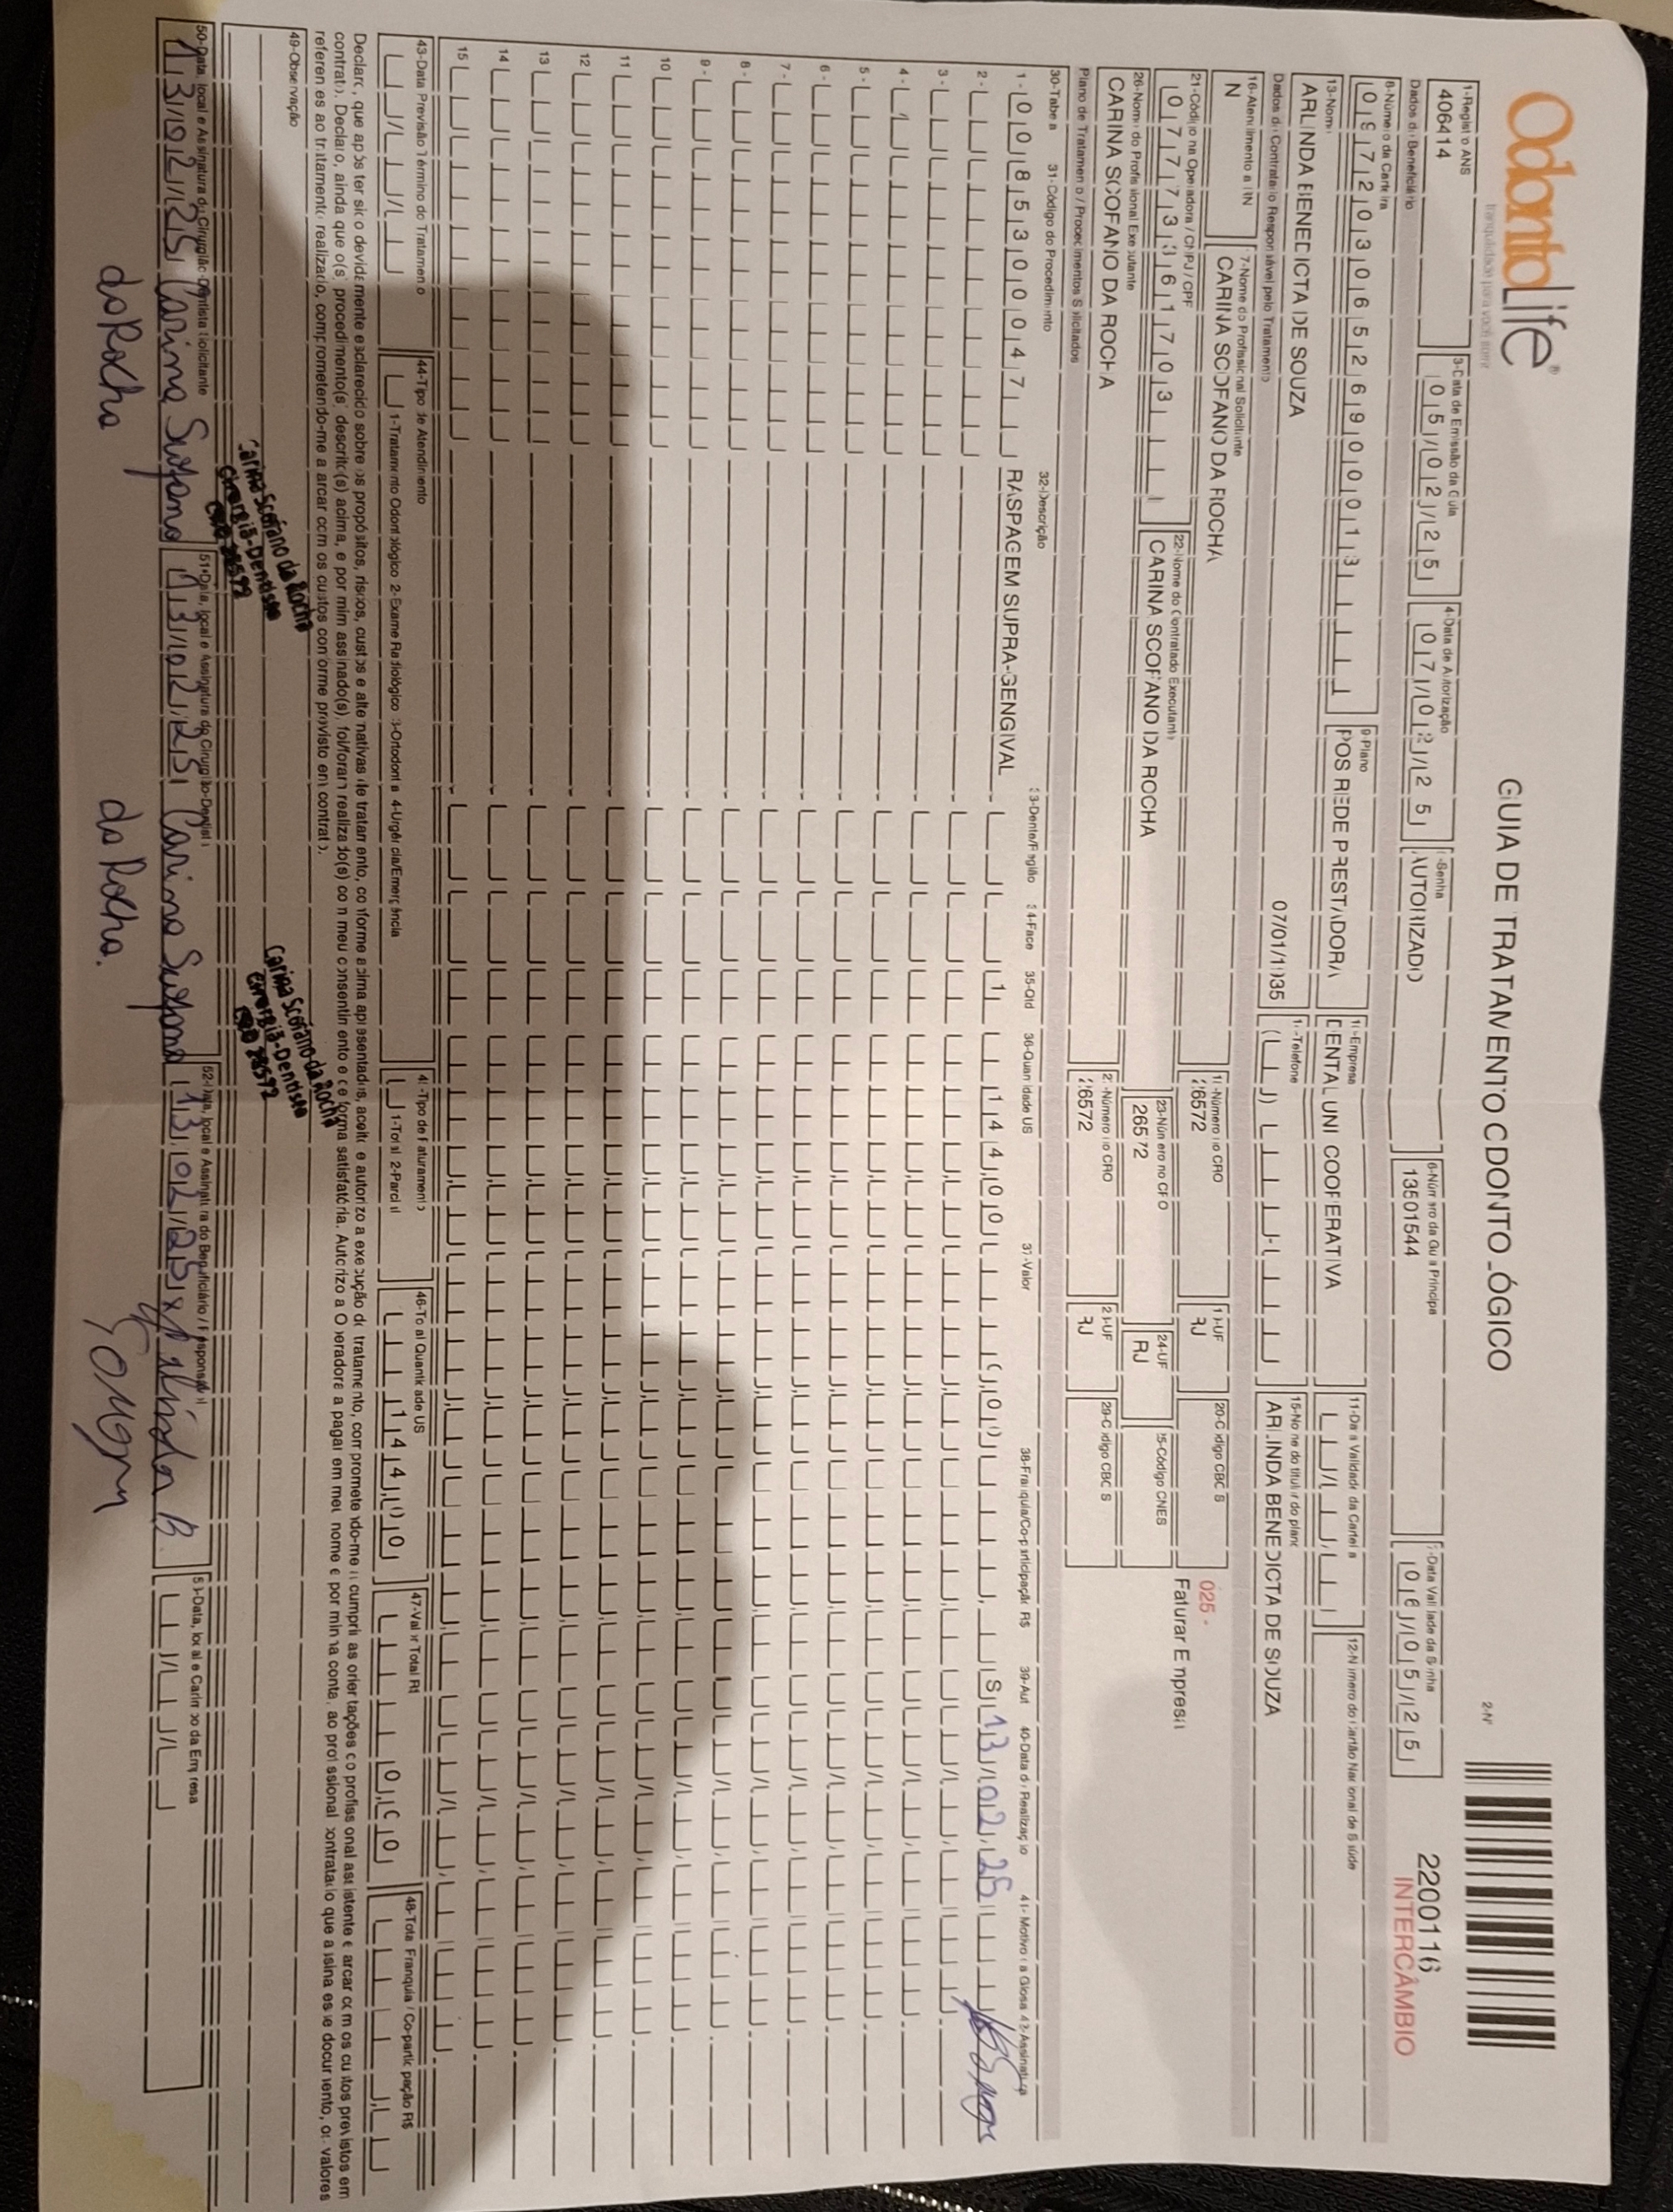 OdontoLife®
tranquilidade para você sorrir
GUIA DE TRATAMENTO ODONTOLÓGICO
2-Nº
2200116
INTERCÂMBIO
1-Registro ANS
406414
3-Data de Emissão da Guia
05/02/25
4-Data de Autorização
07/02/25
5-Senha
AUTORIZADO
6-Número da Guia Principal
13501544
7-Data Validade da Senha
06/05/25
Dados do Beneficiário
8-Número da Carteira
09720306526900013
9-Plano
POS REDE PRESTADORA
10-Empresa
DENTAL UNI COOPERATIVA
11-Data Validade da Carteira
12-Número do Cartão Nacional de Saúde
13-Nome
ARLINDA BENEDICTA DE SOUZA
07/01/1935
14-Telefone
15-Nome do titular do plano
ARLINDA BENEDICTA DE SOUZA
Dados do Contratado Responsável pelo Tratamento
16-Atendimento a RN
N
17-Nome do Profissional Solicitante
CARINA SCOFANO DA ROCHA
18-Número no CRO
26572
19-UF
RJ
20-Código CBO S
025 -
Faturar Empresa
21-Código na Operadora / CNPJ / CPF
07773361703
22-Nome do Contratado Executante
CARINA SCOFANO DA ROCHA
23-Número no CRO
26572
24-UF
RJ
25-Código CNES
26-Nome do Profissional Executante
CARINA SCOFANO DA ROCHA
27-Número no CRO
26572
28-UF
RJ
29-Código CBO S
Plano de Tratamento / Procedimentos Solicitados
30-Tabela 31-Código do Procedimento 32-Descrição 33-Dente/Região 34-Face 35-Qtd 36-Quantidade US 37-Valor 38-Franquia/Co-participação R$ 39-Aut 40-Data de Realização 41-Motivo da Glosa 42-Assinatura
1- 00 85300047 RASPAGEM SUPRA-GENGIVAL 1 144,00 0,00 S 13/02/25
2-
3-
4-
5-
6-
7-
8-
9-
10
11
12
13
14
15
43-Data Previsão Término do Tratamento
44-Tipo de Atendimento
1-Tratamento Odontológico 2-Exame Radiológico 3-Ortodontia 4-Urgência/Emergência
45-Tipo de Faturamento
1-Total 2-Parcial
46-Total Quantidade US
144,00
47-Valor Total R$
0,00
48-Total Franquia / Co-participação R$
Declaro, que após ter sido devidamente esclarecido sobre os propósitos, riscos, custos e alternativas de tratamento, conforme acima apresentados, aceito e autorizo a execução do tratamento, comprometendo-me a cumprir as orientações do profissional assistente e arcar com os custos previstos em
contrato. Declaro, ainda que o(s) procedimento(s) descrito(s) acima, e por mim assinado(s), foi/foram realizado(s) com meu consentimento e de forma satisfatória. Autorizo a Operadora a pagar em meu nome e por minha conta, ao profissional contratado que assina esse documento, os valores
referentes ao tratamento realizado, comprometendo-me a arcar com os custos conforme previsto em contrato.
49-Observação
Carina Scofano da Rocha
Cirurgiã-Dentista
CRO 26572
Carina Scofano da Rocha
Cirurgiã-Dentista
CRO 26572
50-Data, local e Assinatura do Cirurgião-Dentista Solicitante
13/02/25 Carina Scofano
da Rocha
51-Data, local e Assinatura do Cirurgião-Dentista
13/02/25 Carina Scofano
da Rocha.
52-Data, local e Assinatura do Beneficiário / Responsável
13/02/25 x Arlinda B.
53-Data, local e Carimbo da Empresa